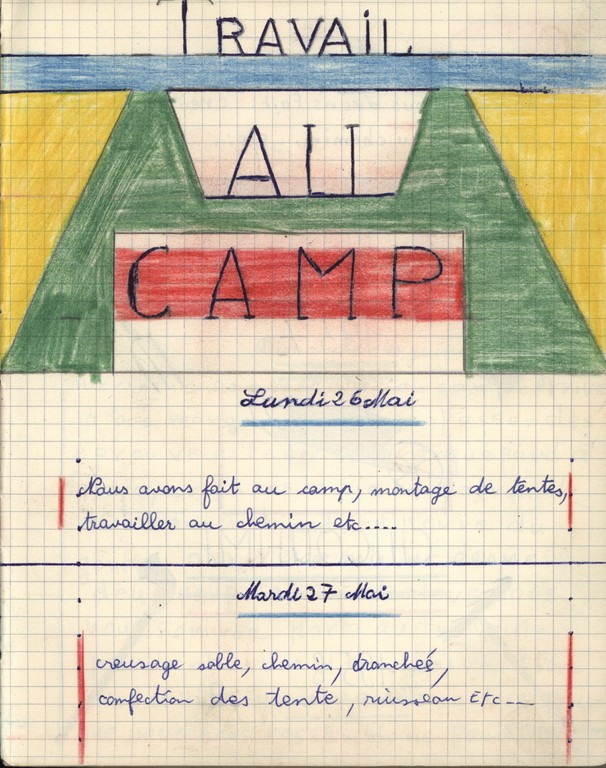 TRAVAIL
AU
CAMP
Lundi 26 Mai
Nous avons fait au camp, montage de tentes,
travailler au chemin etc....
Mardi 27 Mai
creusage sable, chemin, drancheé,
confection des tente, ruisseau Etc---